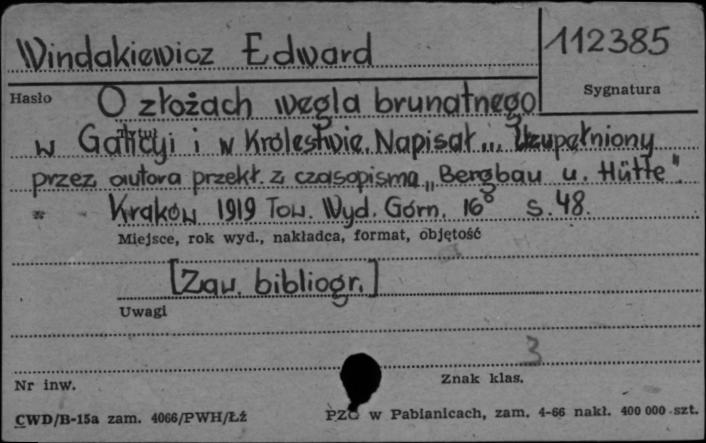 Windakiewicz Edward
112385
Hasło
Sygnatura
O złożach węgla brunatnego
w Galicyi i w Królestwie. Napisał... Uzupełniony
przez autora przekł. z czasopisma „Bergbau u. Hütte".
Kraków 1919 Tow. Wyd. Górn. 16° s. 48.
Miejsce, rok wyd., nakładca, format, objętość
[Zaw. bibliogr.]
Uwagi
3
Nr inw.
Znak klas.
CWD/B-15a zam. 4066/PWH/Łż
PZG w Pabianicach, zam. 4-66 nakł. 400 000 szt.